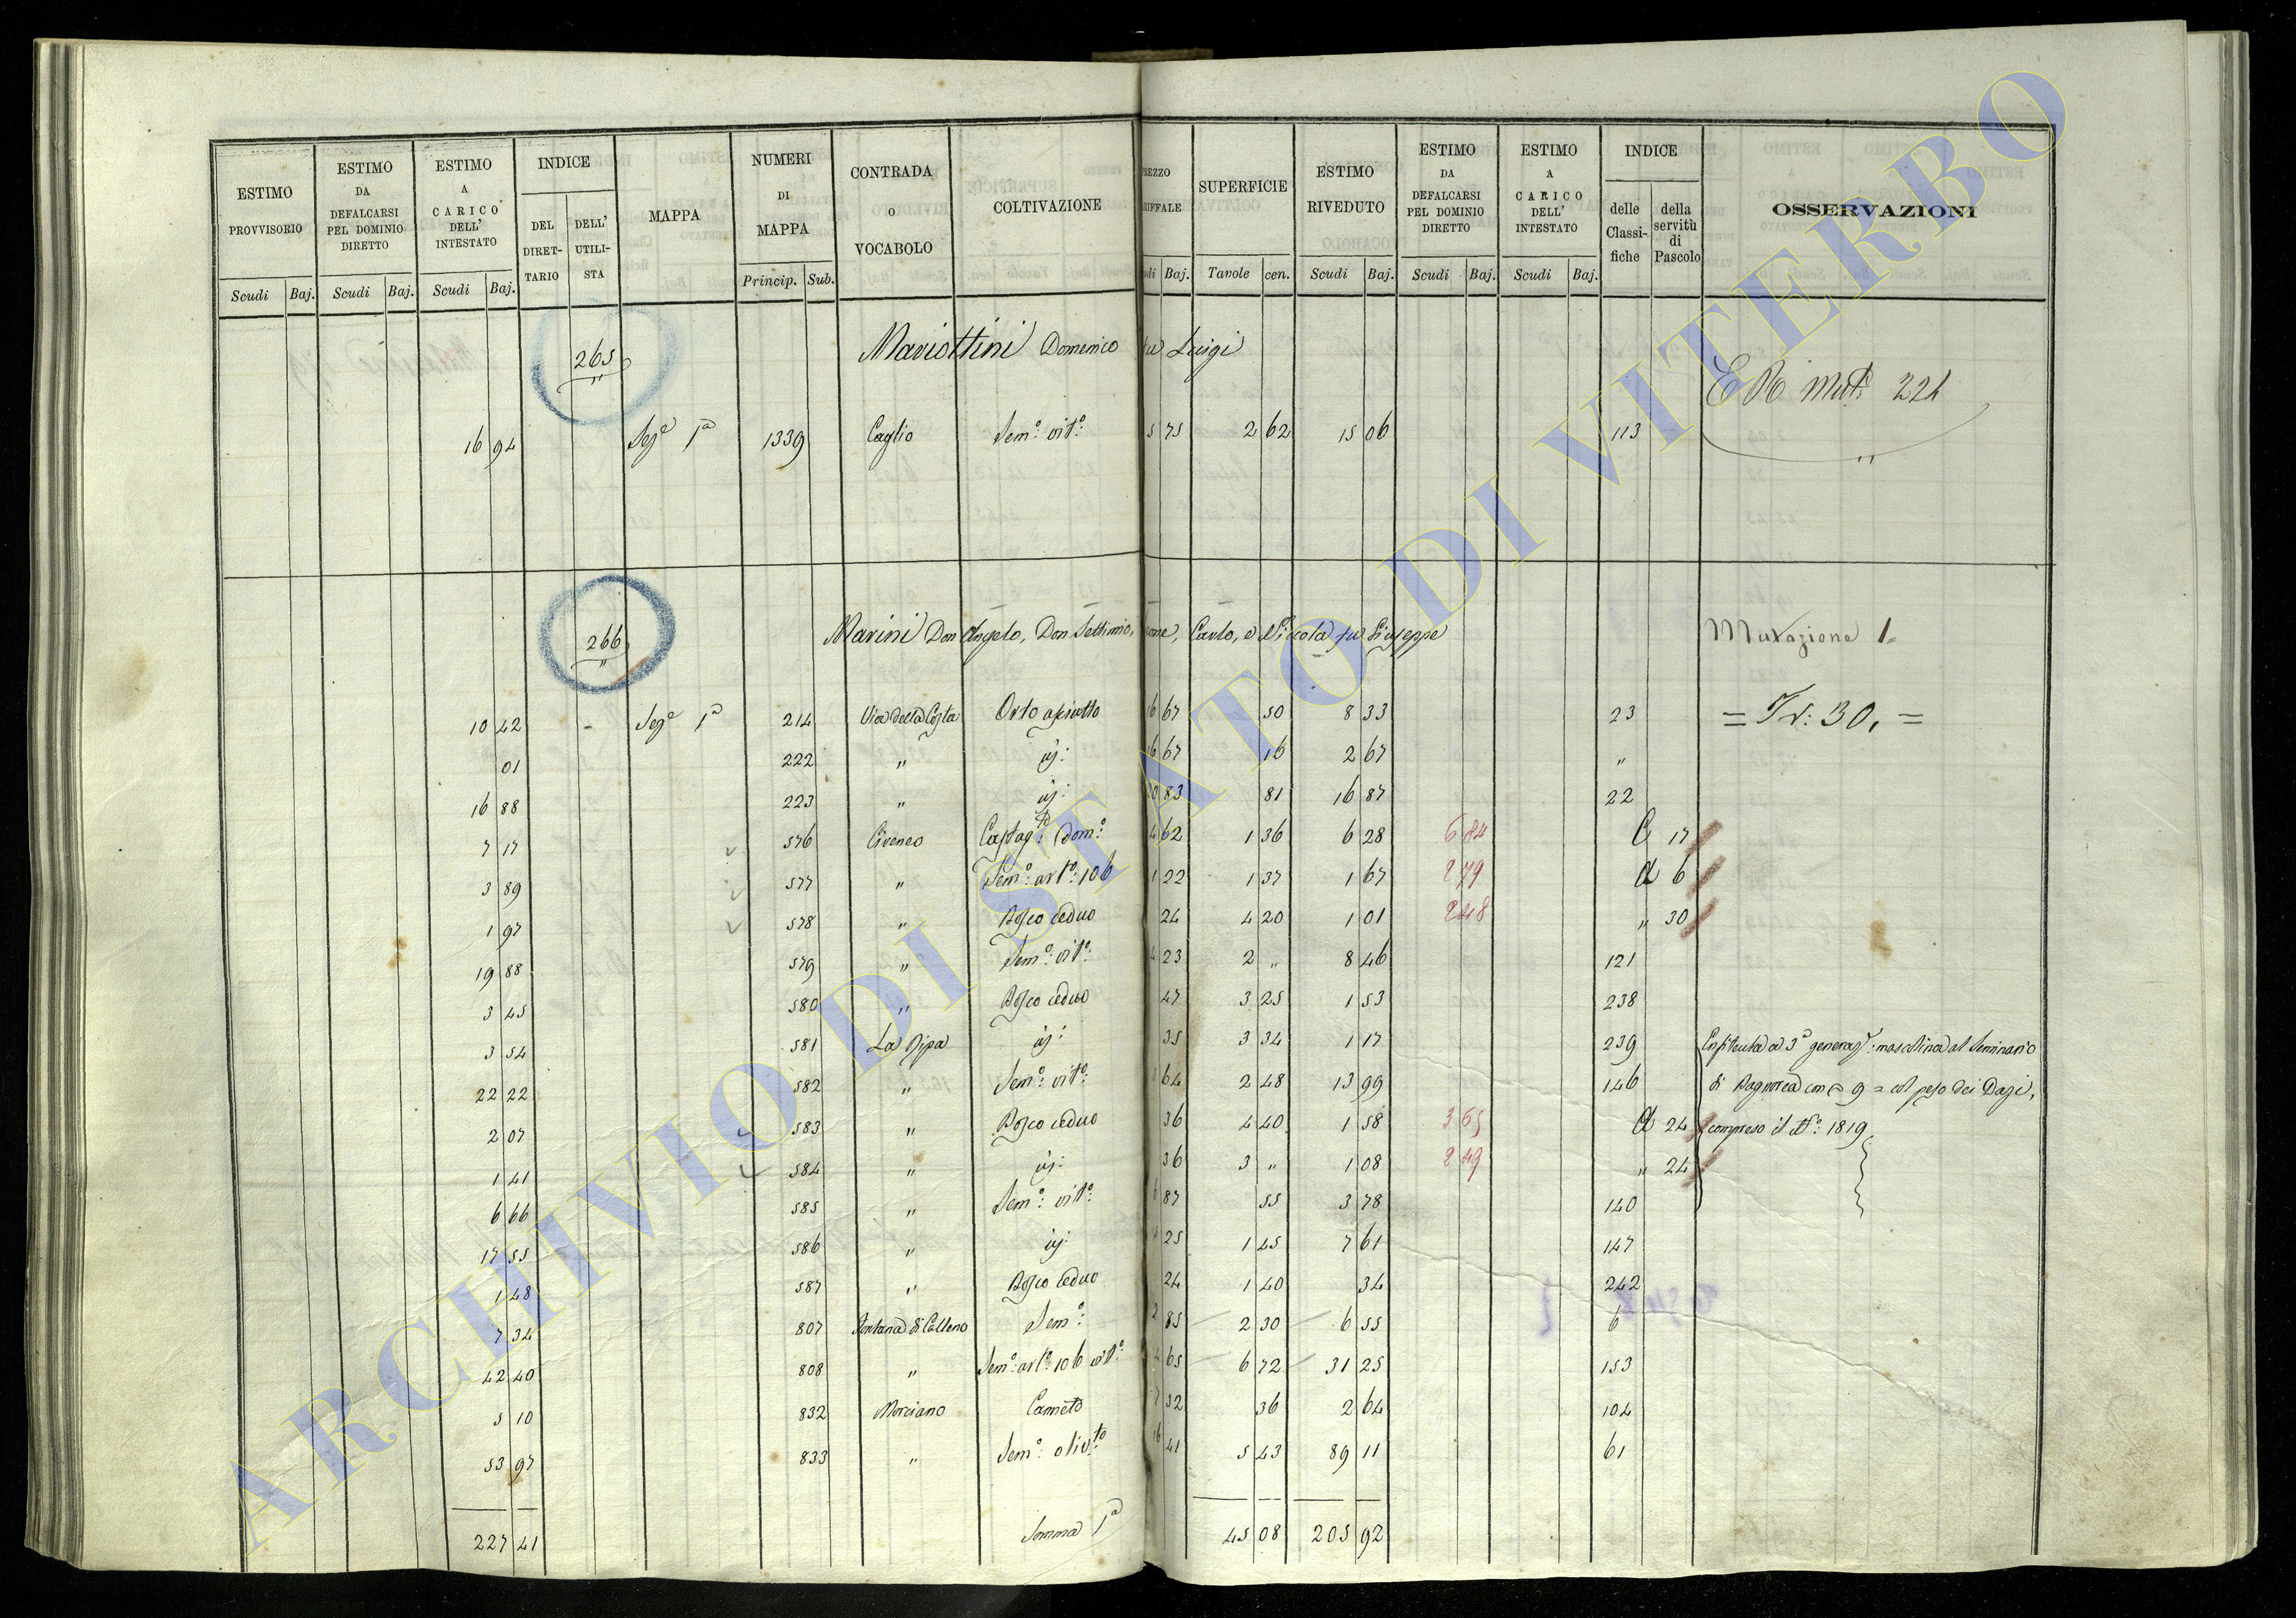 ESTIMO PROVVISORIO | ESTIMO DA DEFALCARSI PEL DOMINIO DIRETTO | ESTIMO A CARICO DELL' INTESTATO | INDICE | MAPPA | NUMERI DI MAPPA | CONTRADA O VOCABOLO | COLTIVAZIONE | REZZO RIFFALE | SUPERFICIE | ESTIMO RIVEDUTO | ESTIMO DA DEFALCARSI PEL DOMINIO DIRETTO | ESTIMO A CARICO DELL' INTESTATO | INDICE | OSSERVAZIONI
DEL DIRETTARIO | DELL' UTILISTA | delle Classifiche | della servitù di Pascolo
Scudi | Baj. | Scudi | Baj. | Scudi | Baj. | Princip. | Sub. | di | Baj. | Tavole | cen. | Scudi | Baj. | Scudi | Baj. | Scudi | Baj.
265 Mariottini Domenico fu Luigi
E R Mut. 221
16 94 Sez.e 1a 1339 Caglio Sem.o vit.o 5 75 2 62 15 06 113
266 Marini Don Angelo, Don Settimio, Carlo, e Nicola fu Giuseppe
Mutazione 1
10 42 - Sez.e 1a 214 Via della Costa Orto asciutto 16 67 50 8 33 23 = Tr: 30. =
01 222 " id: 16 67 16 2 67 "
16 88 223 " id: 20 83 81 16 87 22
7 17 576 Civeneo Castag.to Dom.o 4 62 1 36 6 28 6 84 C 17
3 89 577 " Sem.o art.o: 106 1 22 1 37 1 67 2 79 A 6
1 97 578 " Bosco ceduo 24 4 20 1 01 2 48 " 30
19 88 579 " Sem.o: vit.o: 4 23 2 " 8 46 121
3 45 580 " Bosco ceduo 47 3 25 1 53 238
3 54 581 La Ripa id: 35 3 34 1 17 239 Enfiteuta a 3a generaz.e: mascolina al Seminario
22 22 582 " Sem.o: vit.o: 5 64 2 48 13 99 146 di Bagnorea con = 9 = col peso dei Dazi,
2 07 583 " Bosco ceduo 36 4 40 1 58 3 65 A 24 compreso il N.o: 1819
1 41 584 " id: 36 3 " 1 08 2 49 " 24
6 66 585 " Sem.o: vit.o: 6 87 55 3 78 140
17 55 586 " id: 5 25 1 45 7 61 147
1 48 587 " Bosco ceduo 24 1 40 34 242
7 34 807 Fontana di Calleno Sem.o: 2 85 2 30 6 55 6
42 40 808 " Sem.o: art.o: 106 vit.o: 4 65 6 72 31 25 153
5 10 832 Morciano Canneto 7 32 36 2 64 104
53 97 833 " Sem.o: oliv.to 16 41 5 43 89 11 61
227 41 Somma 1a 45 08 205 92
ARCHIVIO DI STATO DI VITERBO